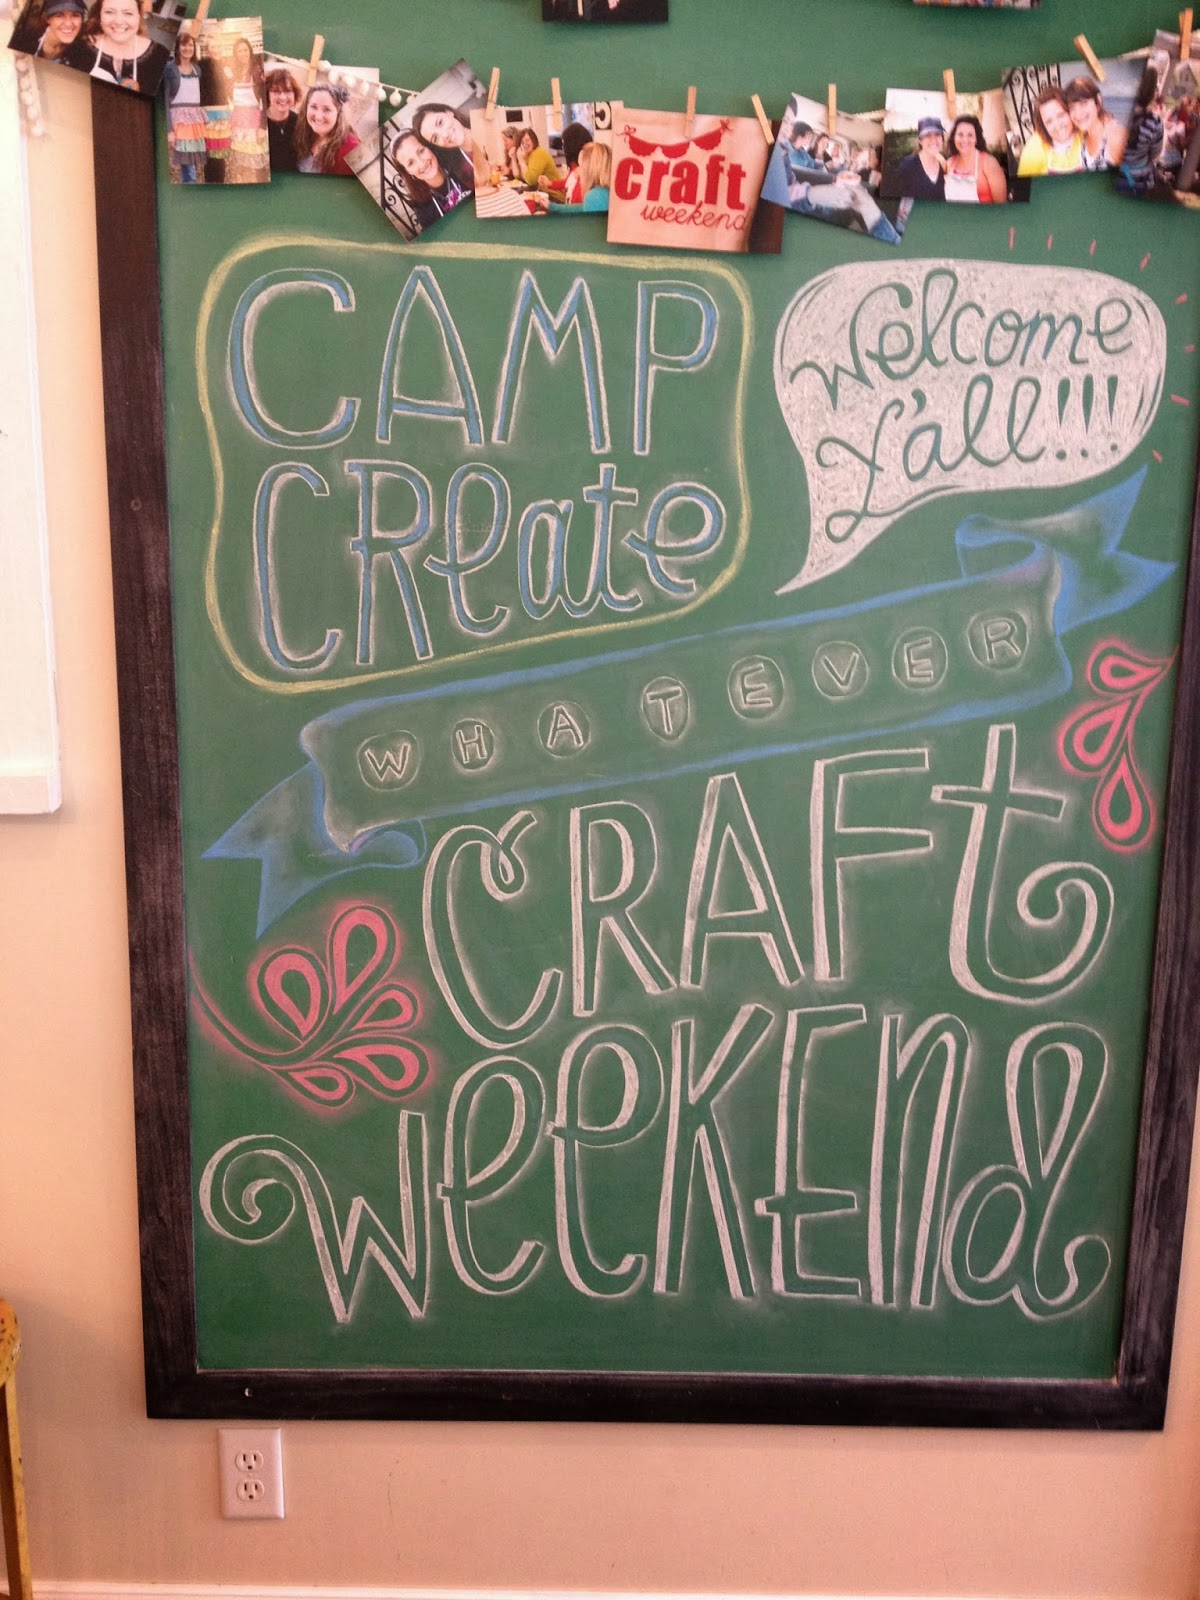 craft
weekend
CAMP
CReate
Welcome
Y'all!!!
WHATEVER
CRAFt
weeKENd